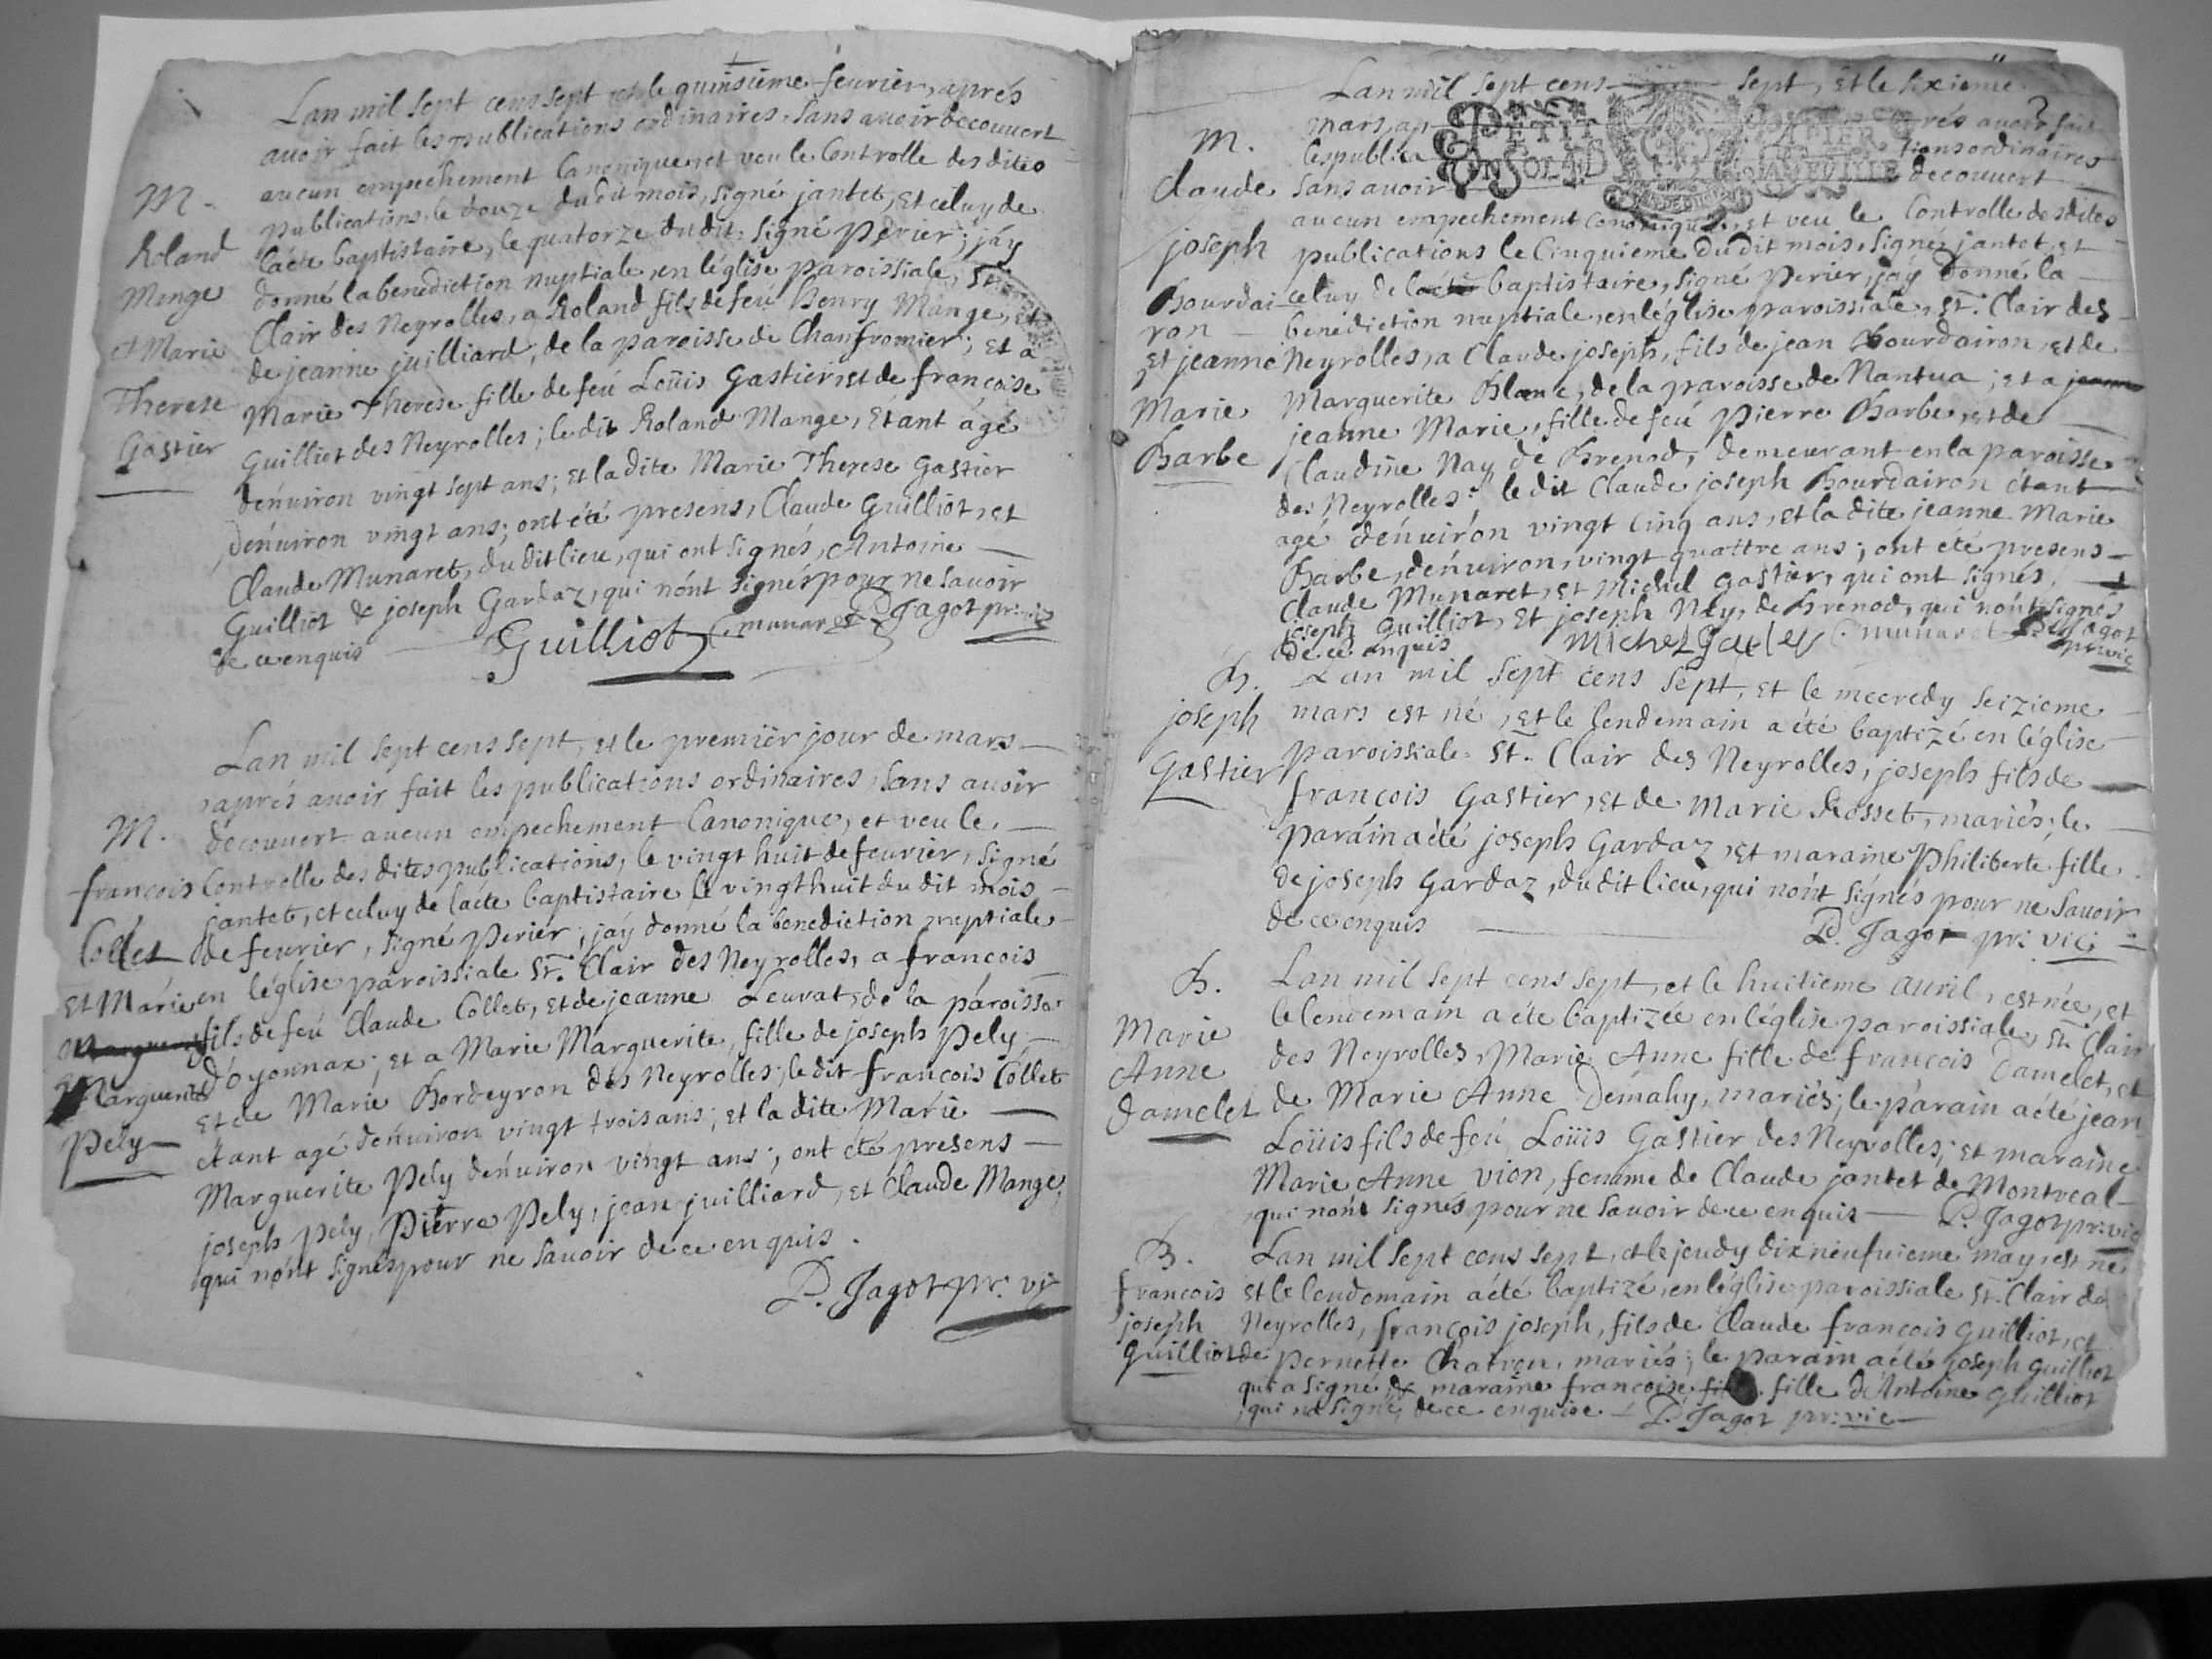 Lan mil sept cens sept et le quinsieme feurier, aprés
auoir fait les publications ordinaires, sans auoir decouuert
aucun empechement Canonique, et veu le Controlle des dites
M.
publications, le douze dudit mois, signé jantet, Et celuy de
Roland
lácte baptistaire, le quatorze dudit, signé Perier; jáy
Menge
donné la benediction nuptiale, en léglise paroissiale, St.
et Marie
Clair des Neyrolles, a Roland fils de feú Henry Mange, et
Therese
de jeanne juilliard, de la paroisse de Chanfromier; Et a
Gastier
Marie Therese fille de feú Loüis Gastier, et de françoise
Guilliot des Neyrolles; le dit Roland Mange, Etant agé
denúiron vingt sept ans; Et la dite Marie Therese Gastier
denúiron vingt ans; ont été presens, Claude Guilliot, et
Claude Munaret, dudit lieu, qui ont signés, Antoine
Guilliot & joseph Gardaz, qui nónt signés pour ne sauoir
de ce enquis
Guilliot C munaret P. Jagot pr: vic
Lan mil sept cens sept, et le premiér jour de mars
aprés auoir fait les publications ordinaires, sans auoir
M.
decouuert aucun empechement Canonique, et veu le
françois
Controlle des dites publications, le vingt huit de feurier, signé
jantet, et celuy de lácte baptistaire le vingt huit du dit mois
Collet
de feurier, signé Periér; jáy donné la benediction nuptiale
Et Márie
en léglise paroissiale St. Clair des Neyrolles, a francois
fils de feú Claude Collet, Et de jeanne Leuvat, de la paroisse
Marguerite
dóyonnax; Et a Marie Marguerite, fille de joseph Pely
Pely
et de Marié Bordeyron des Neyrolles; le dit francois Collet
étant agé denúiron vingt trois ans; Et la dite Marie
Marguerite Pely denúiron vingt ans; ont été presens
joseph Pely, Pierre Pely, jean juilliard, Et Claude Mange,
qui nónt signés pour ne sauoir de ce enquis.
P. Jagot pr: vic
Lan mil sept cens sept, Et le sixieme
mars, aprés auoir fait
PETIT PAPIER
M.
les publications ordinaires
UN SOL
Claude
sans auoir decouuert
aucun empechement Canonique, et veu le Controlle des dites
joseph
publications le Cinquieme du dit mois, signé jantet, et
Bourdai
celuy de lácte baptistaire, signé Perier, jáy donné la
ron
benediction nuptiale, en léglise paroissiale, St. Clair des
Et jeanne
Neyrolles, a Claude joseph, fils de jean Bourdairon, et de
Marie
Marguerite Blanc, de la paroisse de Nantua; et a jeanne
jeanne Marie, fille de feú Pierre Barbe, et de
Barbe
Claudine Nay de Brenod, demeurant en la paroisse
des Neyrolles: le dit Claude joseph Bourdairon étant
agé denúirón vingt Cinq ans, et la dite jeanne Marie
Barbe, denúiron, vingt quattre ans; ont eté presens
Claude Munaret, et Michel Gastier, qui ont signés,
joseph Guilliot, Et joseph Nay, de Brenod, qui nónt signés
de ce enquis Michel gastier C munaret P. Jagot
pr: vic
B.
Lan mil sept cens sept, et le mecredy seizieme
joseph
mars est né, Et le lendemain a été baptizé en léglise
Gastier
paroissiale St. Clair des Neyrolles, joseph fils de
francois Gastier, Et de Marie Rosset, mariés; le
paráin a été joseph Gardaz, Et maraine Philiberte fille
de joseph Gardaz, du dit lieu, qui nónt signés pour ne sauoir
de ce enquis P. Jagot pr: vic:
B.
Lan mil sept cens sept, et le huitieme auril, est née, et
le lendemain a éte baptizée en léglise paroissiale, St. Clair
Marie
des Neyrolles, Marie Anne fille de francois Damelet, et
Anne
de Marie Anne Demahy, mariés; le párain a été jean
Damelet
Loüis fils de feú Loüis Gastier des Neyrolles; Et maraine
Marie Anne vion, femme de Claude jantet de Montreal
qui nónt signés pour ne sauoir de ce enquis P. Jagot pr: vic
B.
Lan mil sept cens sept, et le jeudy dix neufuieme may, est né
francois
et le lendemain a été baptizé, en léglise paroissiale St. Clair de
joseph
Neyrolles, françois joseph, fils de Claude francois Guilliot, et
Guilliot
de Pernette mariés; le parain a été joseph Guilliot
qui a signé & maraine francoise fille dÁntoine Guilliot
qui na signé, de ce enquise P. Jagot pr: vic